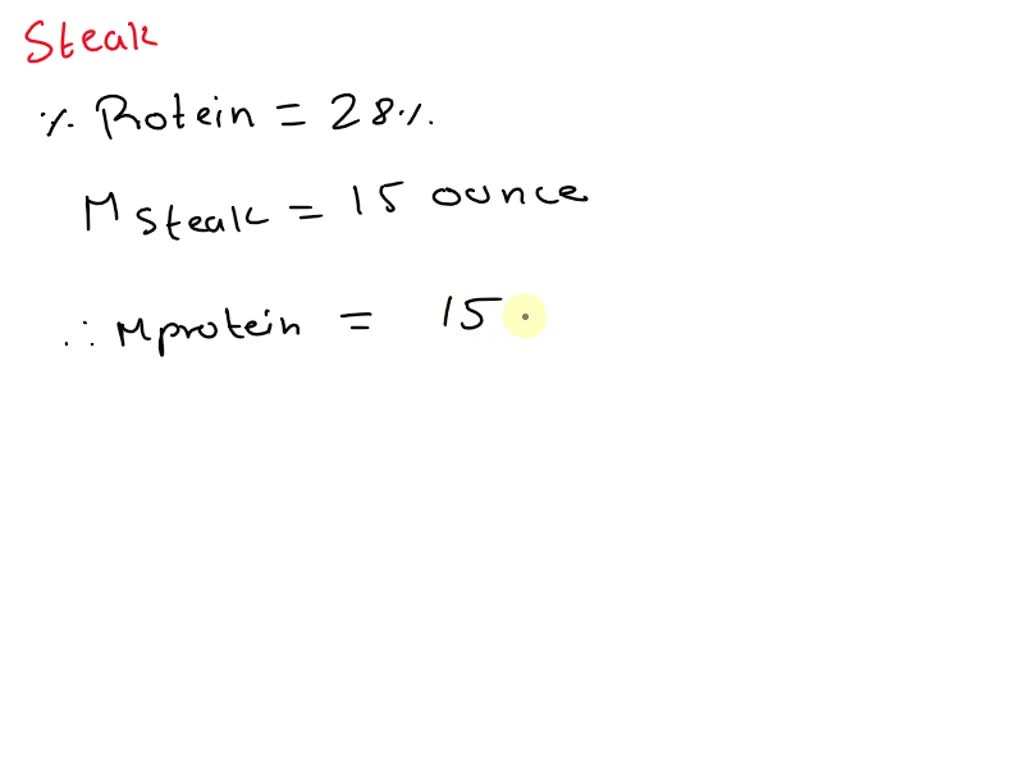 Steak
% Protein = 28%.
M steak = 15 ounce
∴ Mprotein = 15